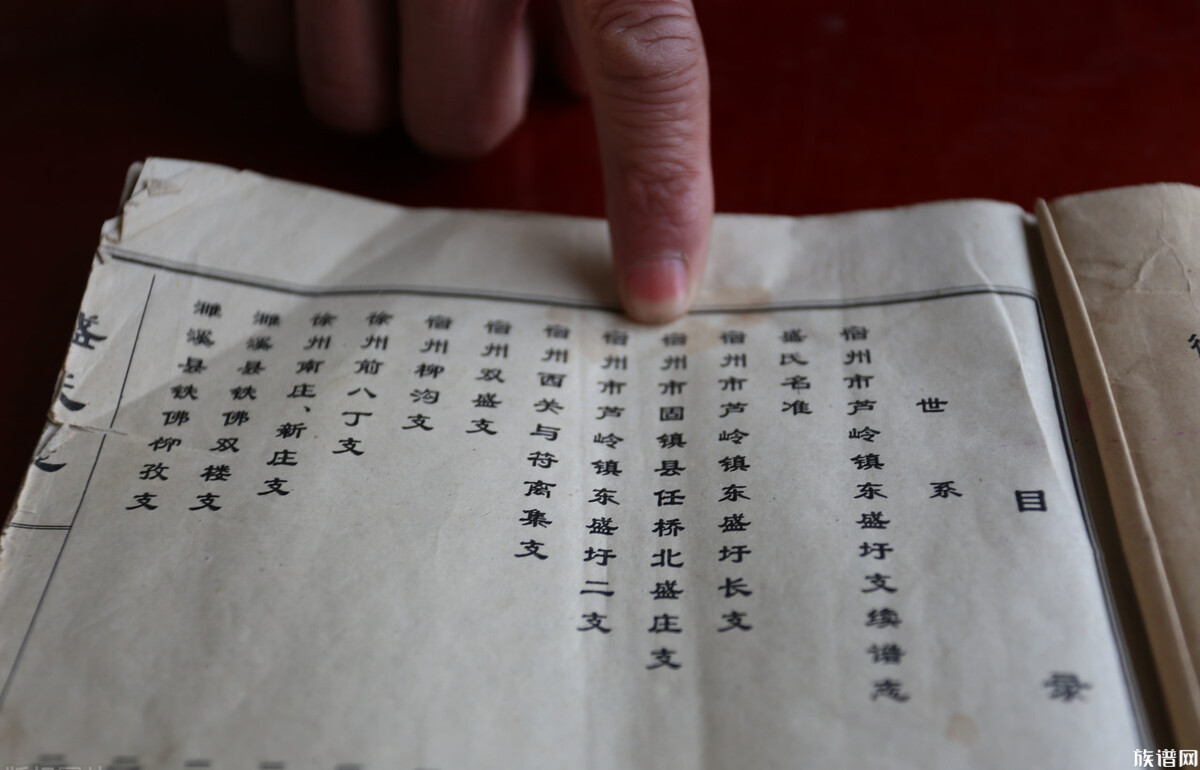 目录
世系
宿州市芦岭镇东盛圩支续谱志
盛氏名准
宿州市芦岭镇东盛圩长支
宿州市固镇县任桥北盛庄支
宿州市芦岭镇东盛圩二支
宿州西关与符离集支
宿州双盛支
宿州柳沟支
徐州前八丁支
徐州南庄、新庄支
濉溪县铁佛双楼支
濉溪县铁佛柳孜支
族谱网